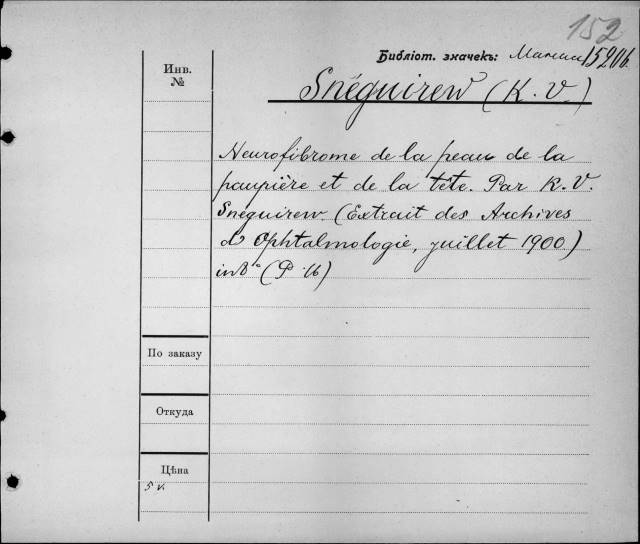 152
Библіот. значекъ:
Инв.
№
Snéguirew (K. V.)
Neurofibrome de la peau de la
paupière et de la tête. Par K. V.
Snéguirew. (Extrait des Archives
d'Ophtalmologie, juillet 1900)
in 8° (P. 16)
По заказу
Откуда
Цѣна
5 v.